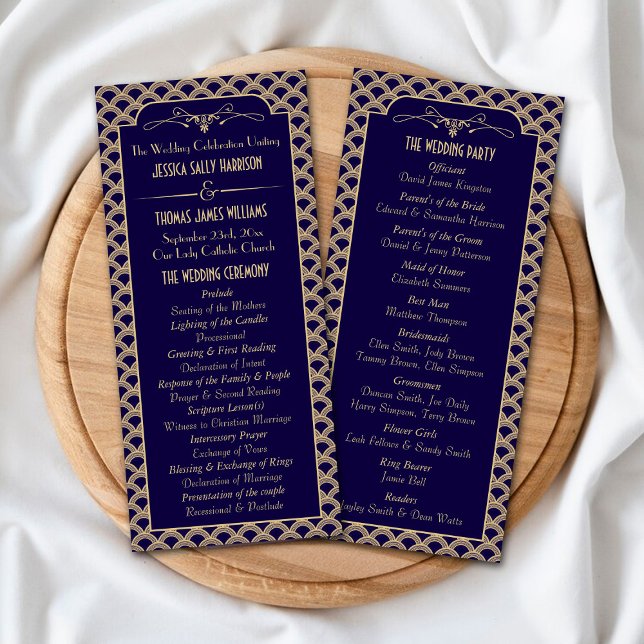 The Wedding Celebration Uniting
JESSICA SALLY HARRISON
&
THOMAS JAMES WILLIAMS
September 23rd, 20xx
Our Lady Catholic Church
THE WEDDING CEREMONY
Prelude
Seating of the Mothers
Lighting of the Candles
Processional
Greeting & First Reading
Declaration of Intent
Response of the Family & People
Prayer & Second Reading
Scripture Lesson(s)
Witness to Christian Marriage
Intercessory Prayer
Exchange of Vows
Blessing & Exchange of Rings
Declaration of Marriage
Presentation of the couple
Recessional & Postlude
THE WEDDING PARTY
Officiant
David James Kingston
Parent's of the Bride
Edward & Samantha Harrison
Parent's of the Groom
Daniel & Jenny Patterson
Maid of Honor
Elizabeth Summers
Best Man
Matthew Thompson
Bridesmaids
Ellen Smith, Jody Brown
Tammy Brown, Ellen Simpson
Groomsmen
Duncan Smith, Joe Daily
Harry Simpson, Terry Brown
Flower Girls
Leah Fellows & Sandy Smith
Ring Bearer
Jamie Bell
Readers
Smith & Dean Watts